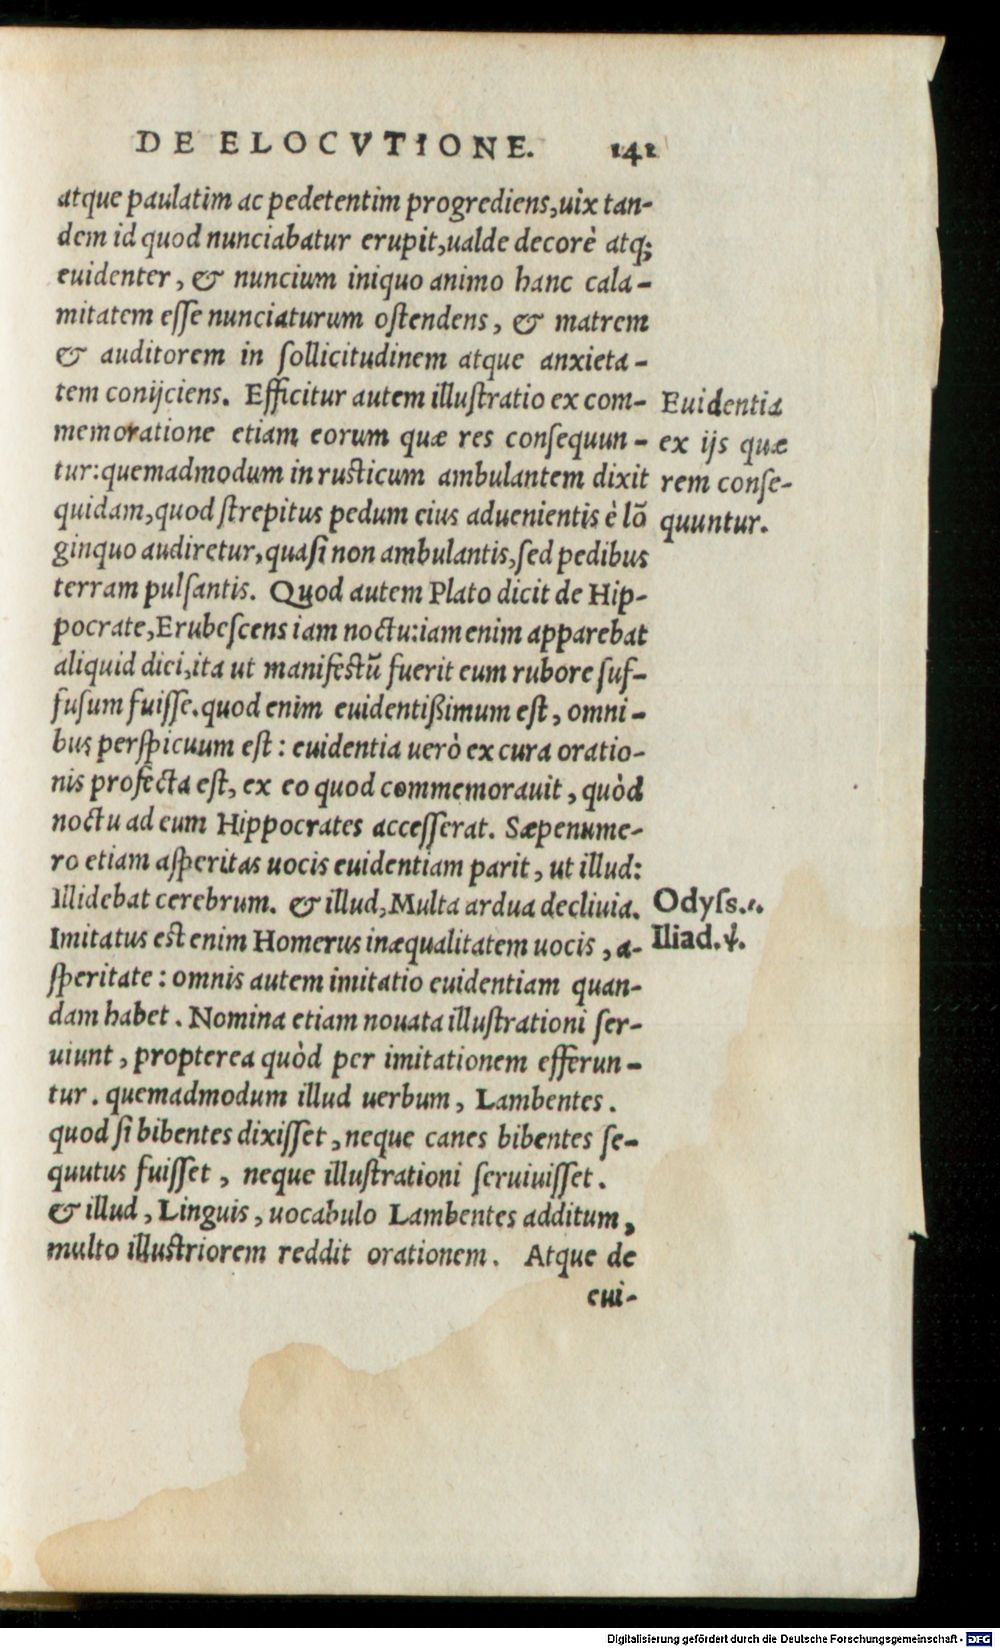 DE ELOCVTIONE. 141
atque paulatim ac pedetentim progrediens,uix tan-
dem id quod nunciabatur erupit,ualde decorè atq;
euidenter, & nuncium iniquo animo hanc cala-
mitatem eſſe nunciaturum oſtendens, & matrem
& auditorem in ſollicitudinem atque anxieta-
tem conijciens. Efficitur autem illuſtratio ex com-
memoratione etiam eorum quæ res conſequun-
tur:quemadmodum in ruſticum ambulantem dixit
quidam,quod ſtrepitus pedum eius aduenientis è lõ
ginquo audiretur,quaſi non ambulantis,ſed pedibus
terram pulſantis. Quod autem Plato dicit de Hip-
pocrate,Erubeſcens iam noctu:iam enim apparebat
aliquid diei,ita ut manifeſtũ fuerit eum rubore ſuf-
fuſum fuiſſe.quod enim euidentißimum eſt, omni-
bus perſpicuum eſt: euidentia uerò ex cura oratio-
nis profecta eſt, ex eo quod commemorauit, quòd
noctu ad eum Hippocrates acceſſerat. Sæpenume-
ro etiam aſperitas uocis euidentiam parit, ut illud:
Illidebat cerebrum. & illud,Multa ardua decliuia.
Imitatus eſt enim Homerus inæqualitatem uocis, a-
ſperitate: omnis autem imitatio euidentiam quan-
dam habet. Nomina etiam nouata illuſtrationi ſer-
uiunt, propterea quòd per imitationem efferun-
tur. quemadmodum illud uerbum, Lambentes.
quod ſi bibentes dixiſſet, neque canes bibentes ſe-
quutus fuiſſet, neque illuſtrationi ſeruiuiſſet.
& illud, Linguis, uocabulo Lambentes additum,
multo illuſtriorem reddit orationem. Atque de
eui-
Euidentia
ex ijs quæ
rem conſe-
quuntur.
Odyſs.ι.
Iliad.ψ.
Digitalisierung gefördert durch die Deutsche Forschungsgemeinschaft - DFG